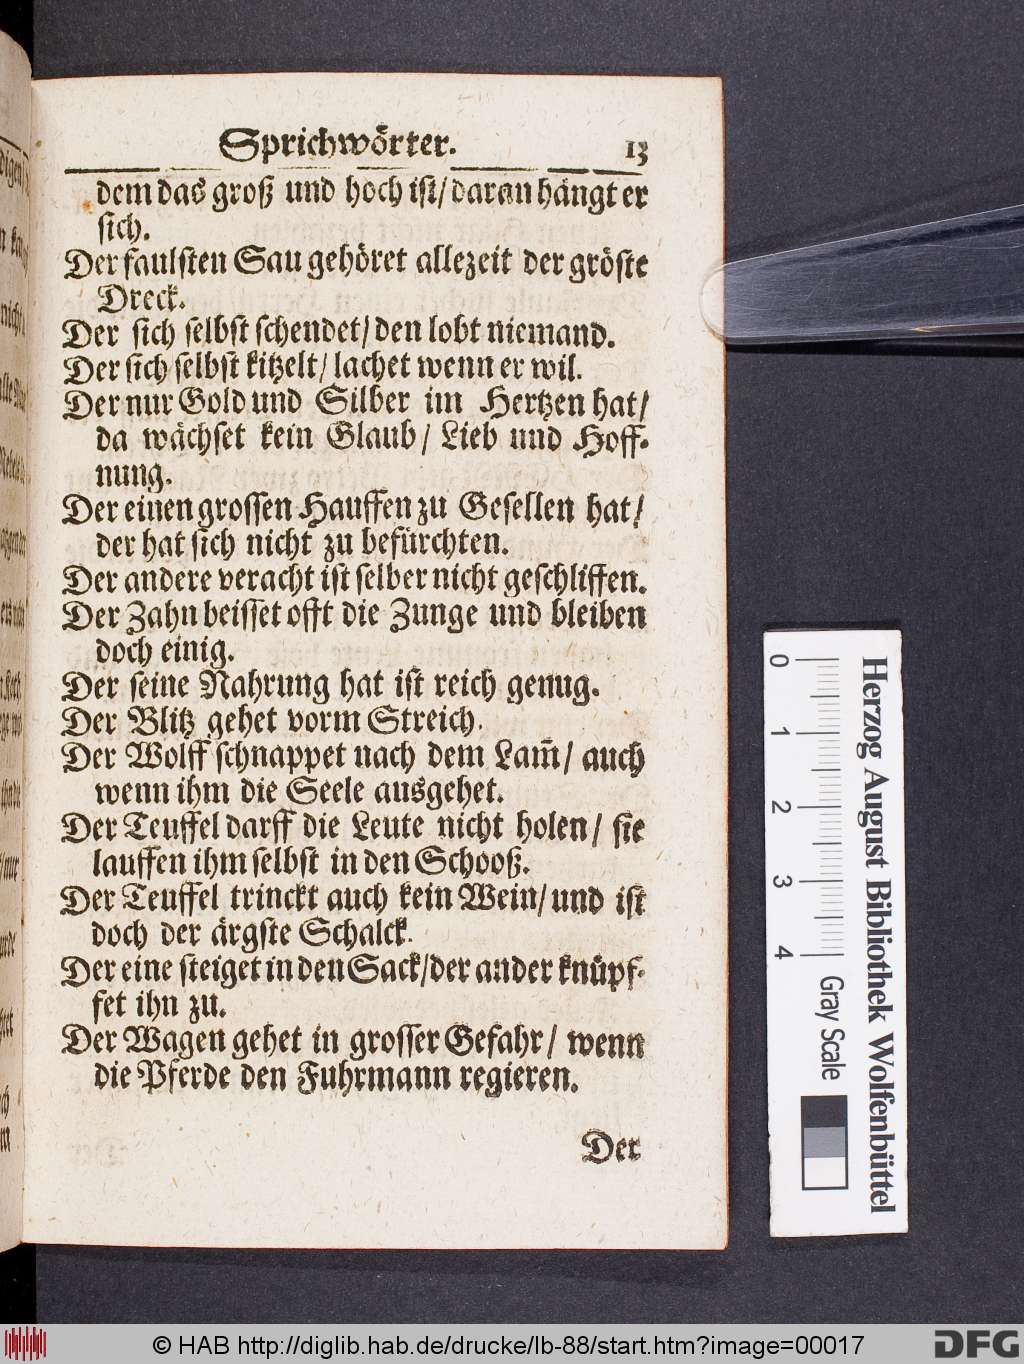 Sprichwörter. 13
dem das groß und hoch ist/ daran hängt er
sich.
Der faulsten Sau gehöret allezeit der gröste
Dreck.
Der sich selbst schendet/ den lobt niemand.
Der sich selbst kitzelt/ lachet wenn er wil.
Der nur Gold und Silber im Hertzen hat/
da wächset kein Glaub/ Lieb und Hoff-
nung.
Der einen grossen Hauffen zu Gesellen hat/
der hat sich nicht zu befürchten.
Der andere veracht ist selber nicht geschliffen.
Der Zahn beisset offt die Zunge und bleiben
doch einig.
Der seine Nahrung hat ist reich genug.
Der Blitz gehet vorm Streich.
Der Wolff schnappet nach dem Lam̄/ auch
wenn ihm die Seele ausgehet.
Der Teuffel darff die Leute nicht holen/ sie
lauffen ihm selbst in den Schooß.
Der Teuffel trinckt auch kein Wein/ und ist
doch der ärgste Schalck.
Der eine steiget in den Sack/ der ander knüpf-
fet ihn zu.
Der Wagen gehet in grosser Gefahr/ wenn
die Pferde den Fuhrmann regieren.
Der
0 1 2 3 4 Gray Scale
Herzog August Bibliothek Wolfenbüttel
© HAB http://diglib.hab.de/drucke/lb-88/start.htm?image=00017
DFG